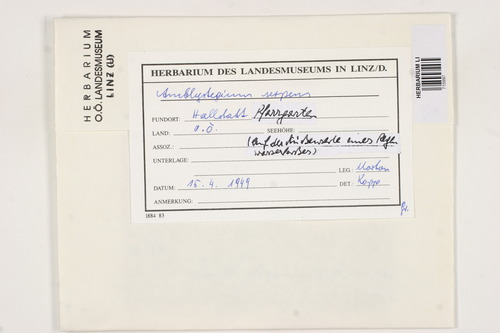 HERBARIUM
O.Ö. LANDESMUSEUM
LINZ (LI)
HERBARIUM DES LANDESMUSEUMS IN LINZ/D.
Amblystegium serpens
FUNDORT: Hallstatt Pfarrgarten
LAND: O.Ö. SEEHÖHE:
ASSOZ.: (Auf der Außenseite eines Regen
wasserfasses)
UNTERLAGE:
LEG.:
DATUM: 15. 4. 1949 DET.:
ANMERKUNG:
1884 83
HERBARIUM LI